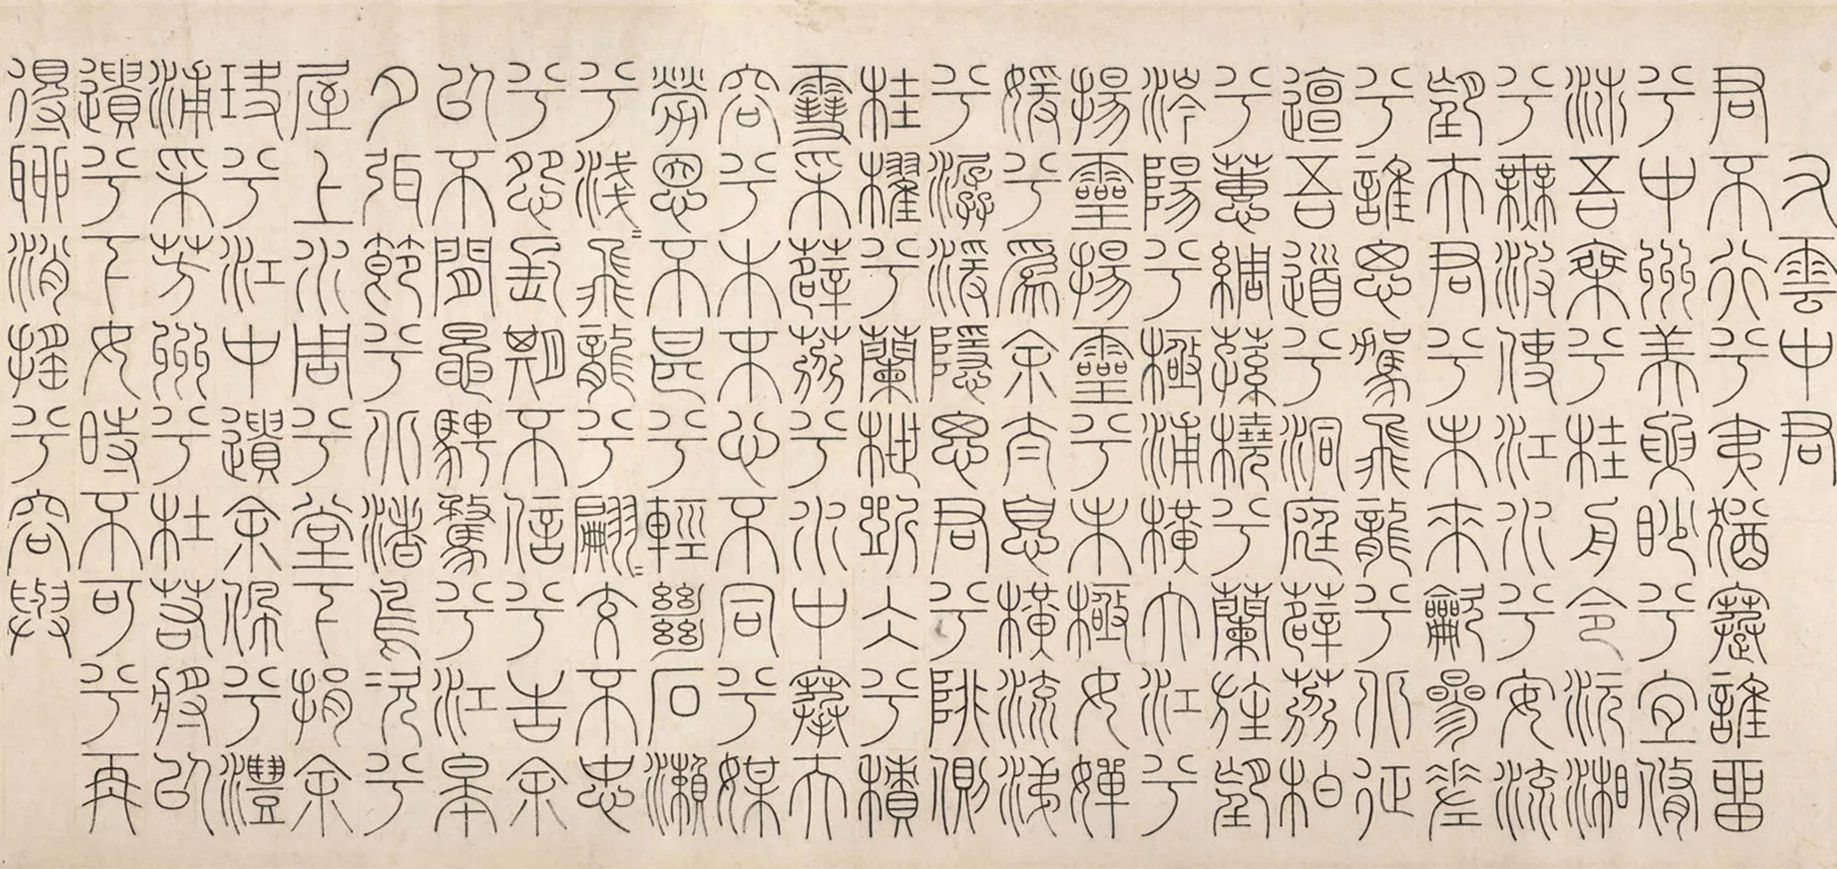 又雲中君
君不行兮夷猶蹇誰留
兮中州美要眇兮宜脩
沛吾乘兮桂舟令沅湘
兮無波使江水兮安流
望夫君兮未來龡參差
兮誰思駕飛龍兮北征
邅吾道兮洞庭薜荔柏
兮蕙綢蓀橈兮蘭旌望
涔陽兮極浦橫大江兮
揚靈揚靈兮未極女嬋
媛兮為余太息橫流涕
兮潺湲隱思君兮陫側
桂櫂兮蘭枻斲仌兮積
雪采薜荔兮水中搴夫
容兮木末心不同兮媒
勞恩不甚兮輕絕石瀨
兮淺=飛龍兮翩=交不忠
兮怨長期不信兮告余
以不閒鼂騁騖兮江皋
夕弭節兮北渚鳥次兮
屋上水周兮堂下捐余
玦兮江中遺余佩兮澧
浦采芳州兮杜若將以
遺兮下女時不可兮再
得聊消搖兮容與